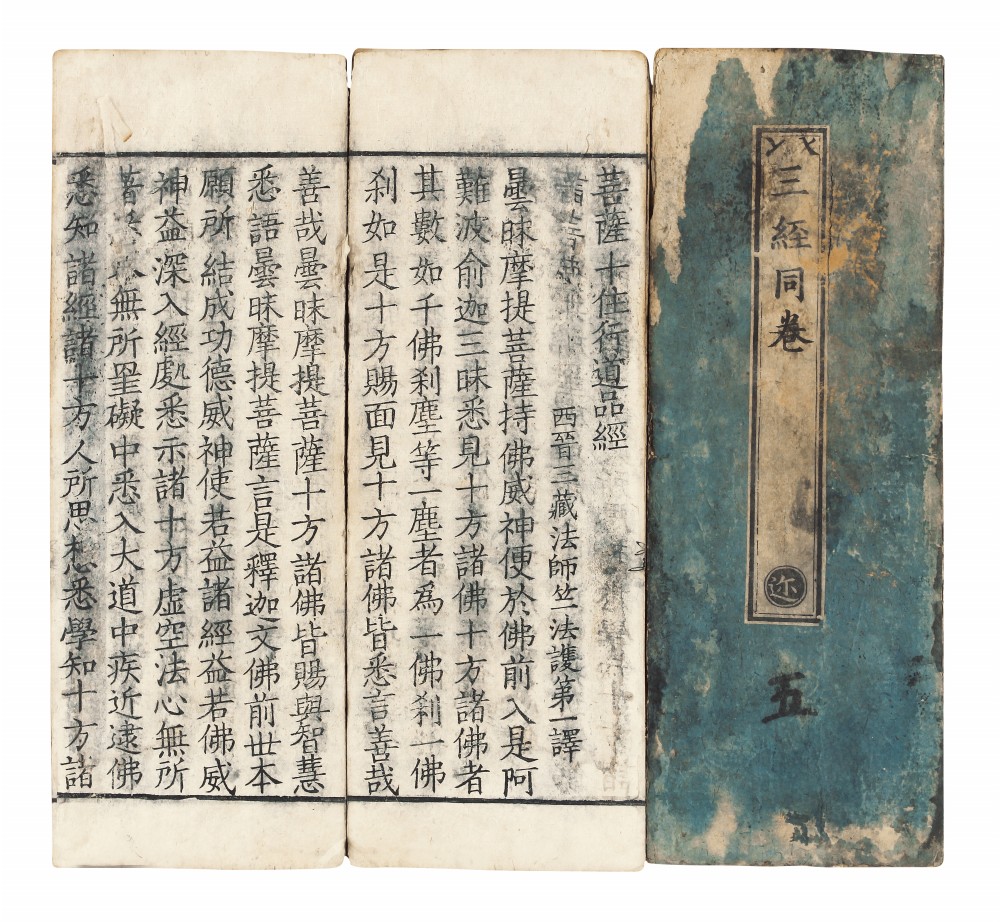 三經同卷
弥
五
菩薩十住行道品經
西晉三藏法師竺法護第一譯
曇昧摩提菩薩持佛威神便於佛前入是阿
難波俞迦三昧悉見十方諸佛十方諸佛者
其數如千佛刹塵等一塵者為一佛刹一佛
刹如是十方賜面見十方諸佛皆悉言善哉
善哉曇昧摩提菩薩十方諸佛皆賜與智慧
悉語曇昧摩提菩薩言是釋迦文佛前世本
願所結成功德威神使若益諸經益若佛威
神益深入經處悉示諸十方虛空法心無所
著無所罣礙中悉入大道中疾近逮佛
悉知諸經諸十方人所思想悉學知十方諸